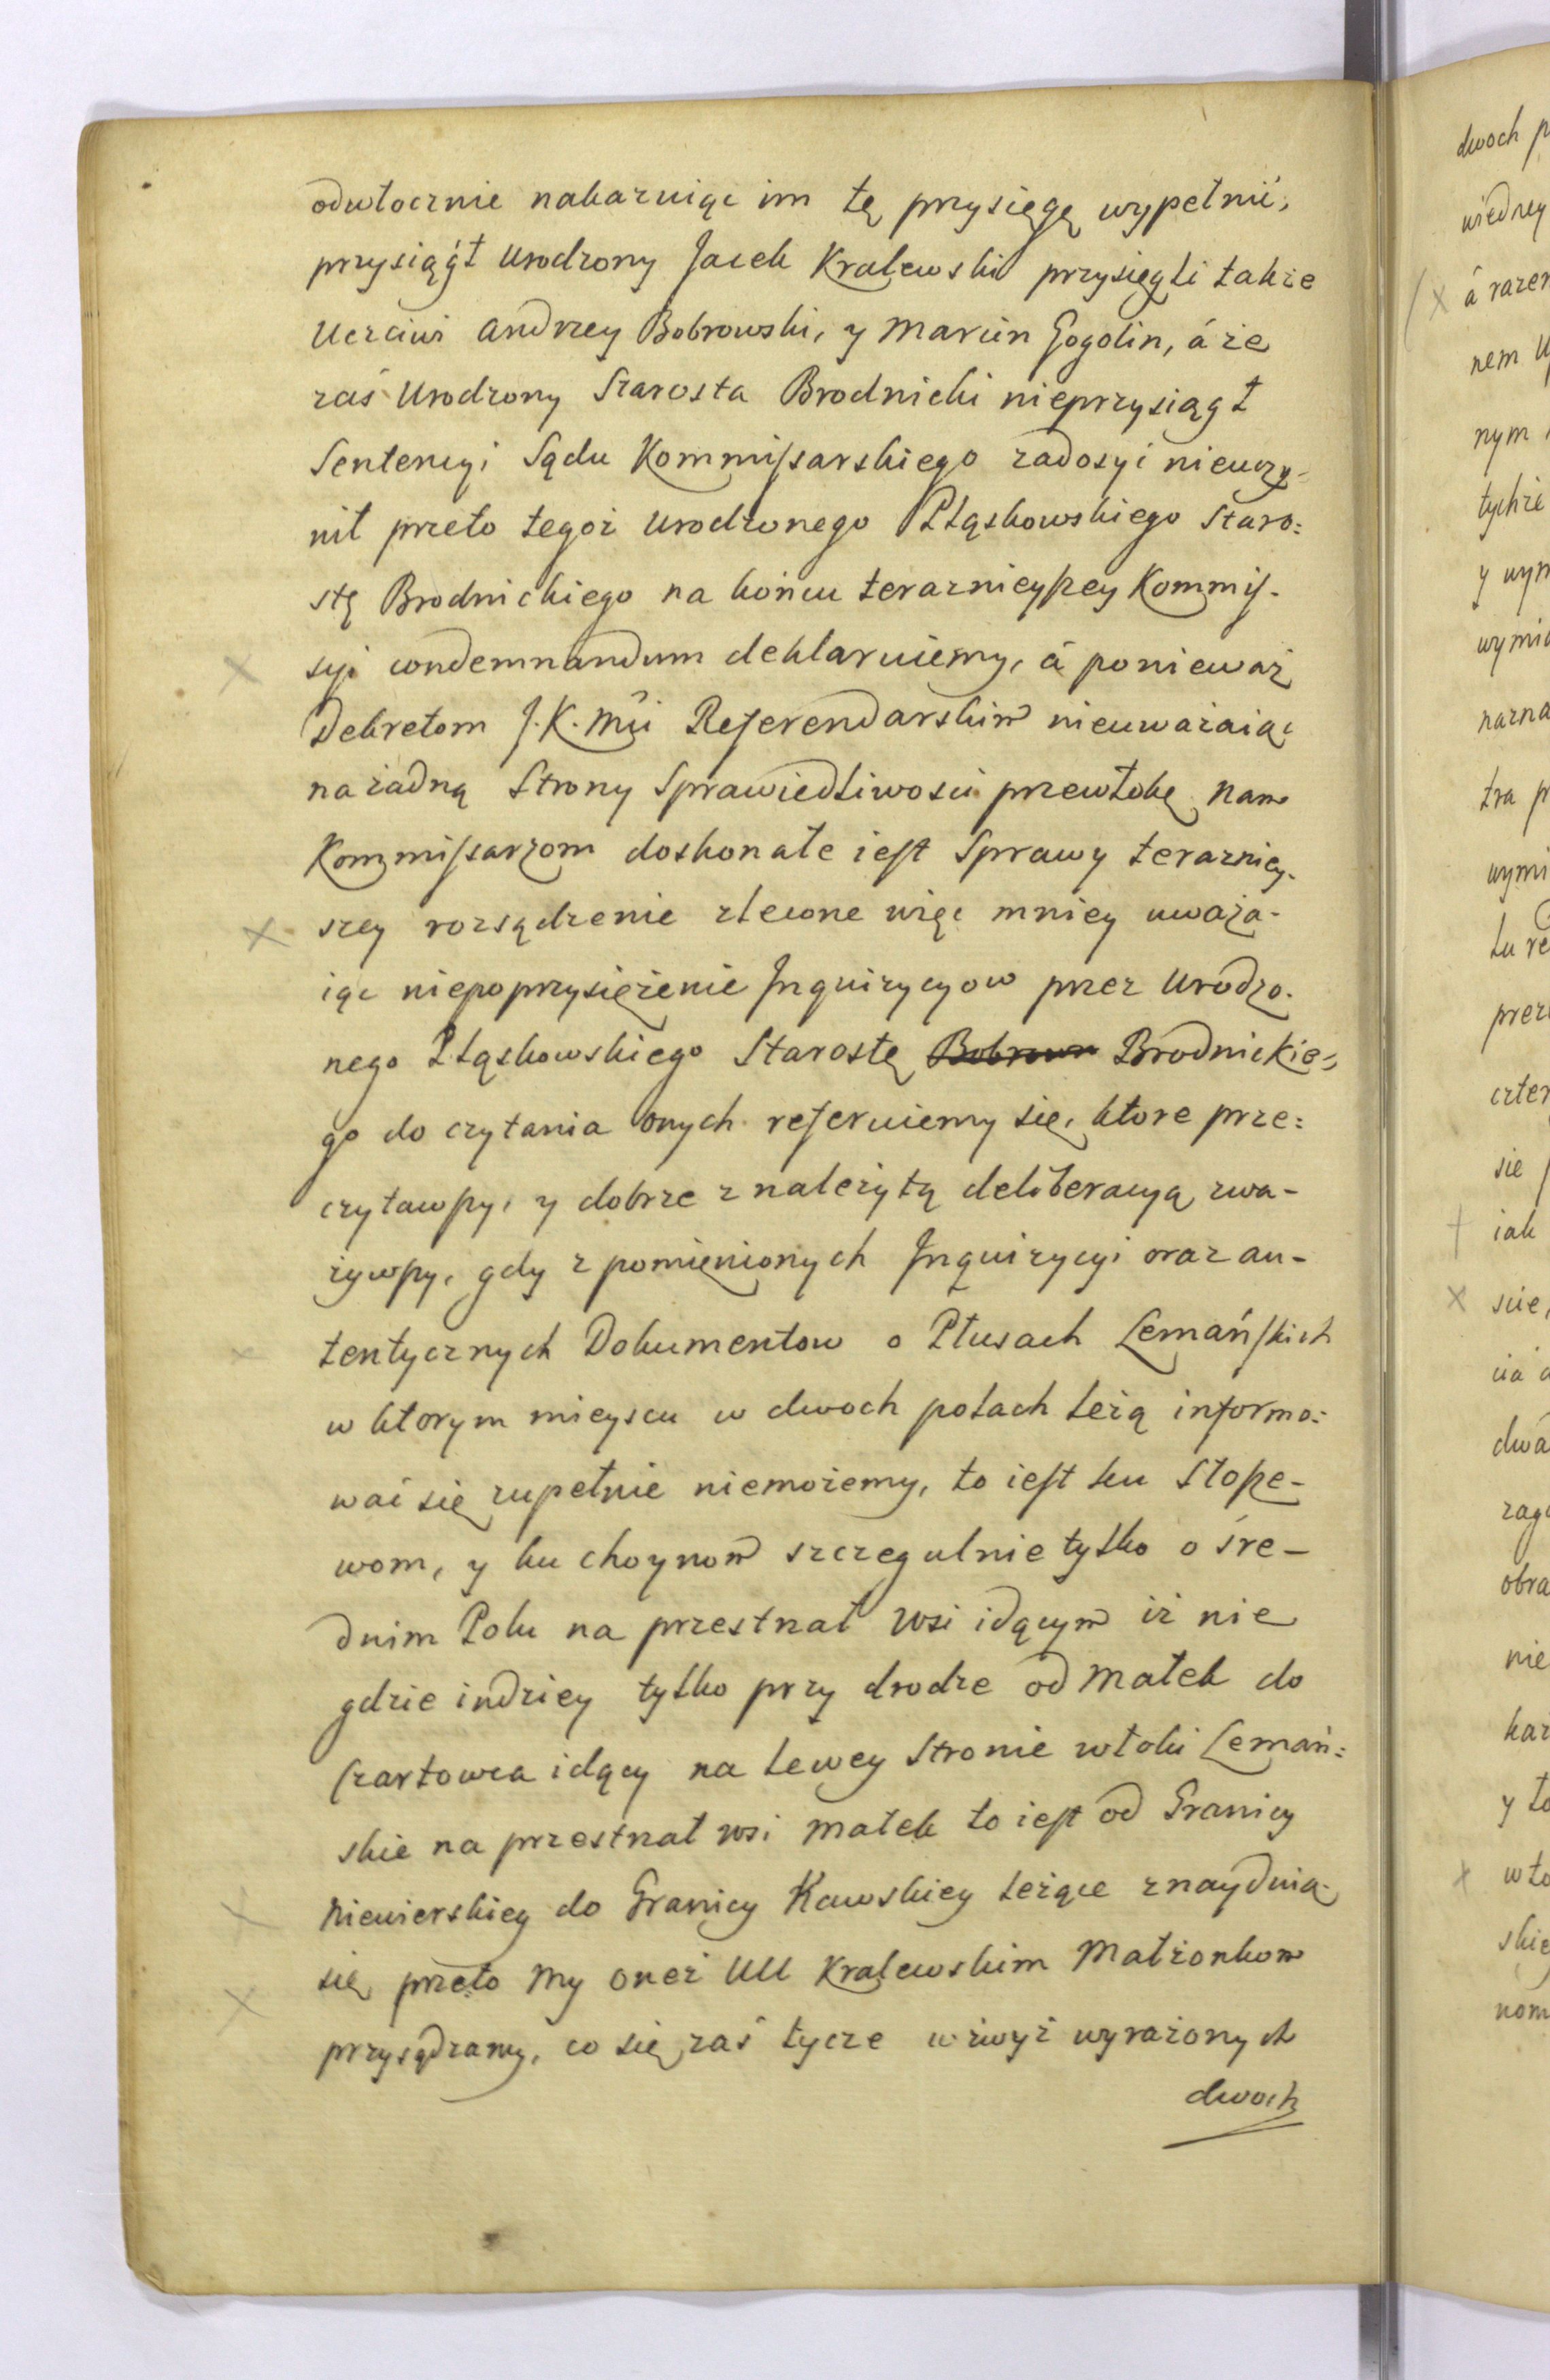 odwłocznie nakazuiąc im tę przysięgę wypełnić,
przysiągł Urodzony Jacek Kralewski przysięgli także
Uczciwi Andrzey Bobrowski, y Marcin Gogolin, á że
zaś Urodzony Starosta Brodnicki nieprzysiągł
Sentencyi Sądu Kommissarskiego zadosyć nieuczy-
nił przeto tegoż Urodzonego Pląskowskiego Staro:
stę Brodnickiego na końcu teraznieyszey Kommis-
syi condemnandum deklaruiemy, á ponieważ
Dekretem J. K. Mći Referendarskim nieuważaiąc
na żadną Strony Sprawiedliwości przewłokę nam
Kommissarzom doskonałe iest Sprawy teraźniey-
szey rozsądzenie zlecone więc mniey uważa-
iąc niepoprzysiężenie Inquizycyow przez Urodzo-
nego Pląskowskiego Starostę Bobrown Brodnickie-
go do czytania onych referuiemy się, ktore prze:
czytawszy, y dobrze z należytą deliberacyą zwa-
żywszy, gdy z pomienionych Inquizycyi oraz au-
tentycznych Dokumentow o Płusach Lemańskich
w ktorym mieyscu w dwoch polach leżą informo:
wać się zupełnie niemożemy, to iest ku Słosze-
wom, y ku Choynom szczegulnie tylko o śre-
dnim Polu na przestrzał Wsi idącym iż nie
gdzie indziey tylko przy drodze od Małek do
Czartowca idący na lewey Stronie włoki Lemań:
skie na przestrzał wsi Małek to iest od Granicy
Niewierskiey do Granicy Kawskiey leżące znayduią
się przeto My oneż UU Kralewskim Małżonkom
przysądzamy, co się zaś tycze wżwyż wyrażonych
dwoch
dwoch
á razem
tychże
iak